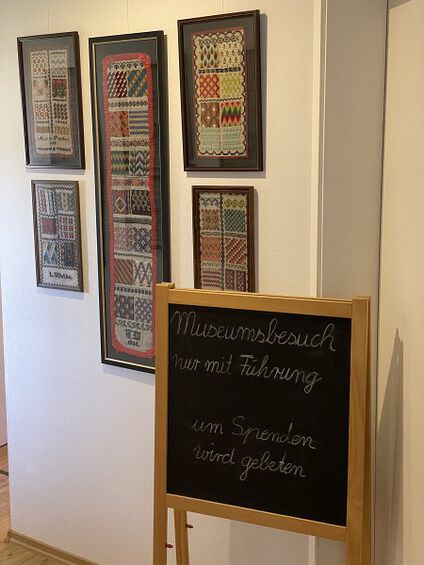 L. Uhlhe
Museumsbesuch
nur mit Führung
um Spenden
wird gebeten